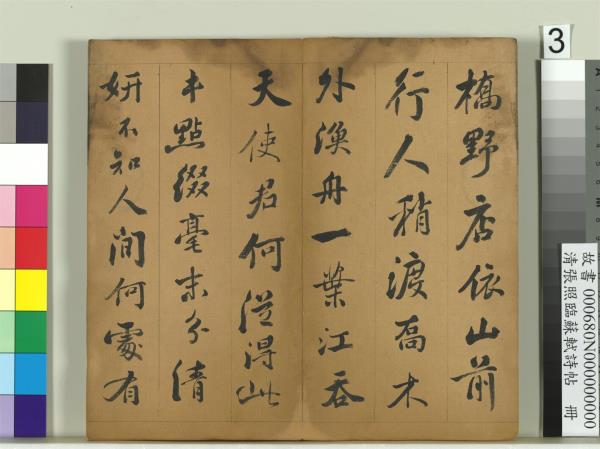 橋野店依山前
行人稍渡喬木
外漁舟一葉江吞
天使君何從得此
本點綴毫末分清
妍不知人間何處有
3
故書 000680N000000000
清張照臨蘇軾詩帖 冊